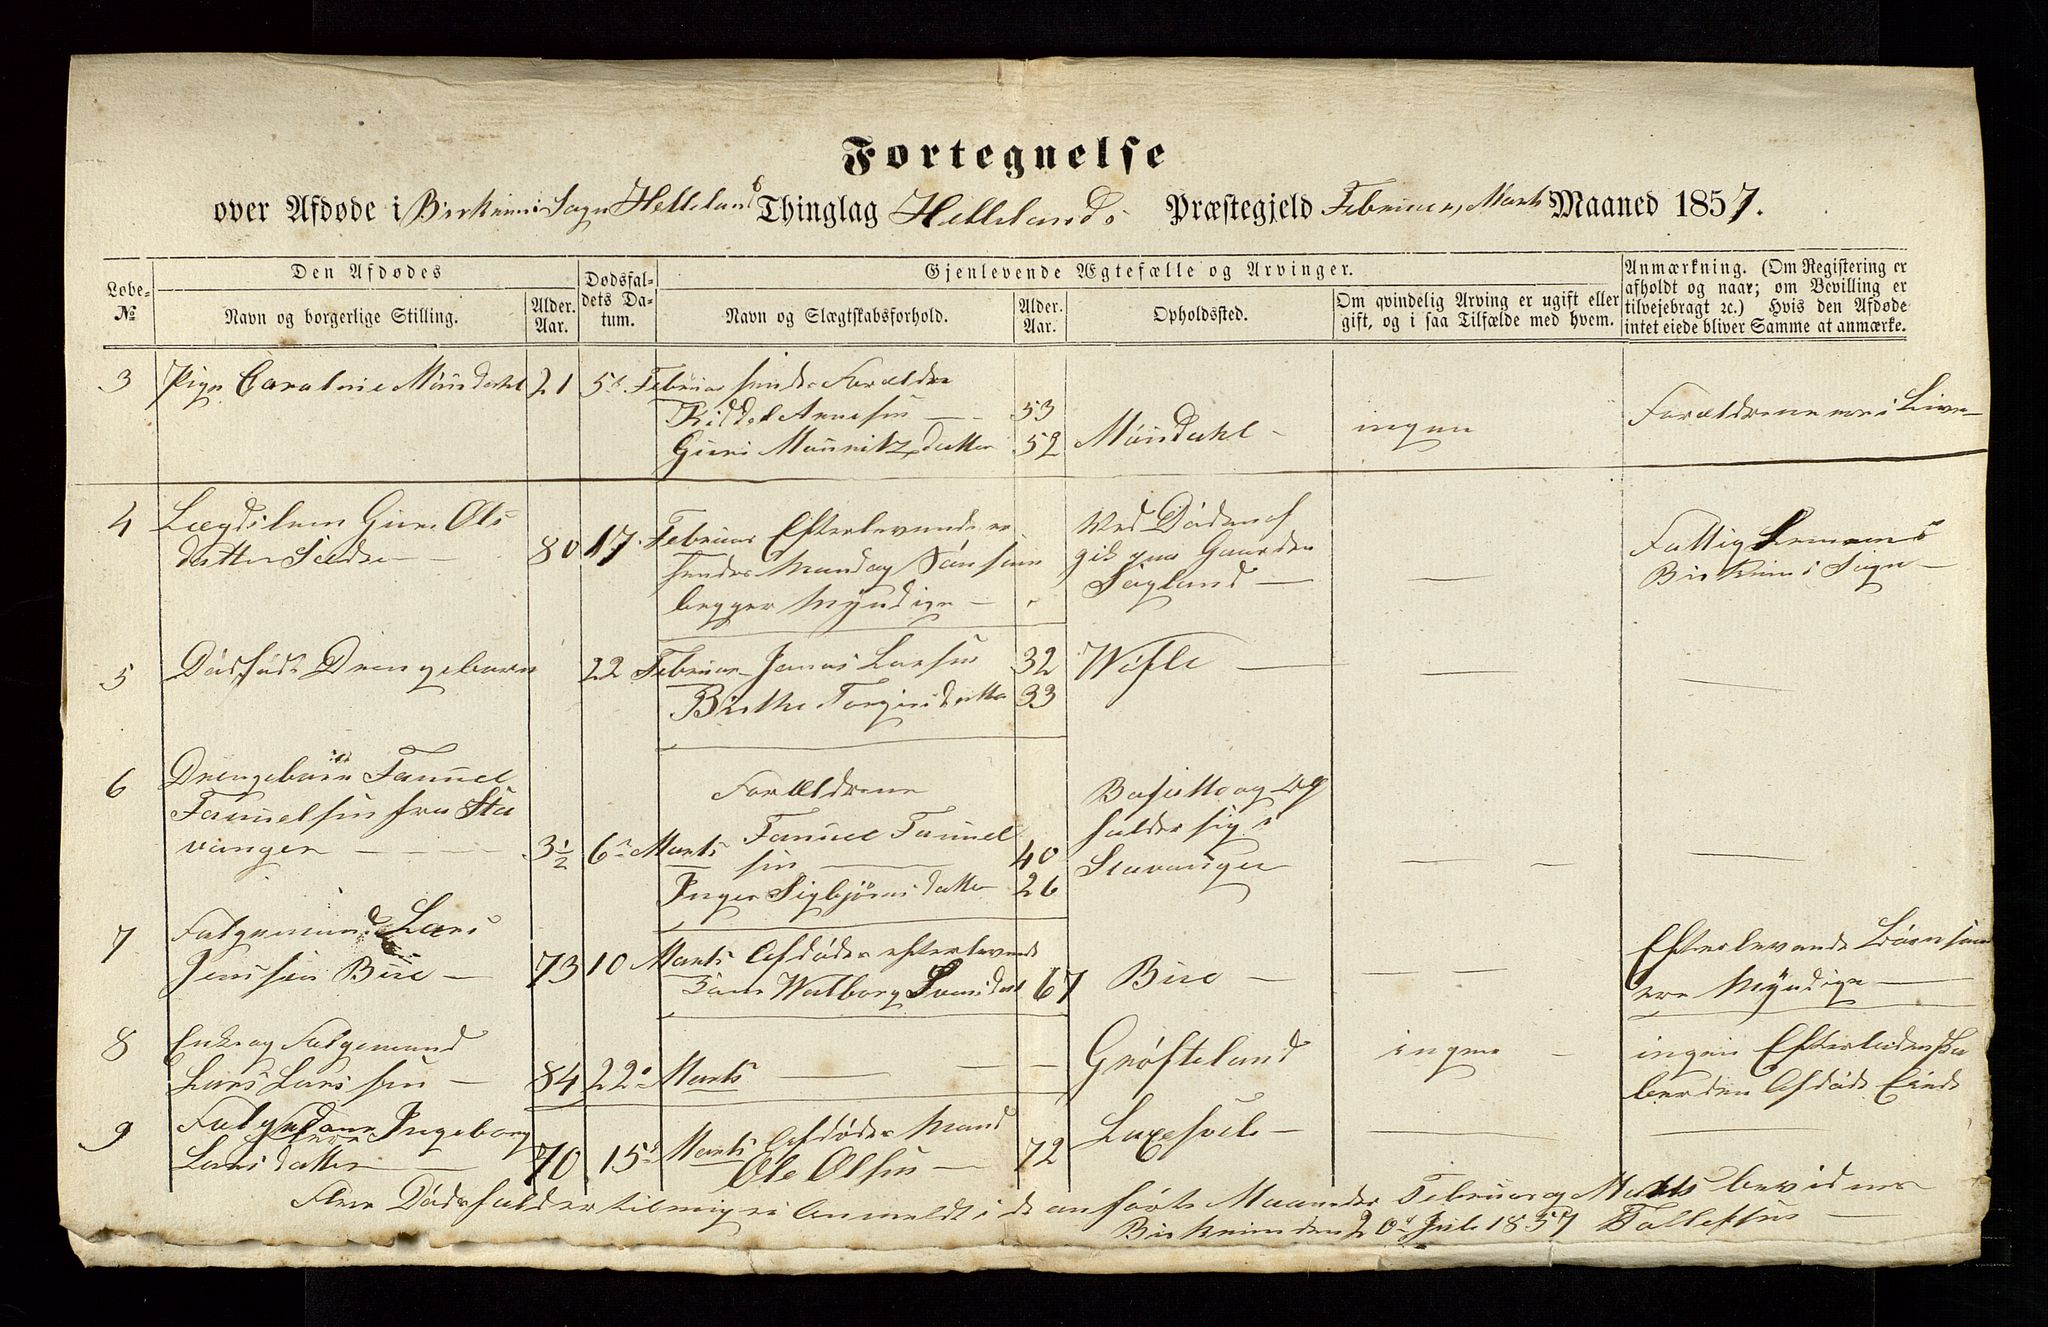 Fortegnelse
over Afdøde i Birkrem Sogn Hellelands Thinglag Hellelands Præstegjeld Februar, Marts Maaned 1857.
Løbe-№
Den Afdødes
Navn og borgerlige Stilling.
Alder. Aar.
Dødsfaldets Datum.
Gjenlevende Ægtefælle og Arvinger.
Navn og Slægtskabsforhold.
Alder. Aar.
Opholdssted.
Om qvindelig Arving er ugift eller
gift, og i saa Tilfælde med hvem.
Anmærkning. (Om Registering er
afholdt og naar; om Bevilling er
tilvejebragt ꝛc.) Hvis den Afdøde
intet eiede bliver Samme at anmærke.
3 Pige Caroline Mündahl 21 5te Februar hendes Forældre
Kiddel Arnesen 53
Guri Mauritzdatter 52 Mündahl ingen Forældrene ere i Live
4 Lægdslem Guri Ols
datter Sædse 80 17 Februar Efterlevende er
hendes Mand og Søn som
begger Myndige
Ved Døden af
gik paa Gaarden
Sagland
Fattig Lem
Birkrem Sogn
5 Dødfødt Drengebarn 22 Februar Jonas Larsen 32 Wæfle
Birthe Torgersdatter 33
6 Drengebarn Samuel
Samuelsen fra Sta
vanger 3½ 6te Marts
Forældrene
Samuel Samuel
sen 40
Inger Sigbjørnsdatter 26
Bosatte og op
holder sig i
Stavanger
7 Folgemand Lars
Jenssen Bue 73 10 Marts Afdødes efterlevende
Kone Walborg Svensdat 67 Bue
Efterlevende Børn som
ere Myndige
8 Enke og Folgemand
Lars Larssen 84 22de Marts Grøfteland ingen
ingen Efterladenska
ber den Afdøde Eiede
9 Folgekone Ingeborg
Larsdatter 70 15de Marts Afdødes Mand
Ole Olsen 72 Laxesvele
Flere Dødsfalder til mig ei Anmeldt i de anførte Maaneder Februar og Marts bevidnes
Birkrem den 20de Juli 1857 Tollefsen